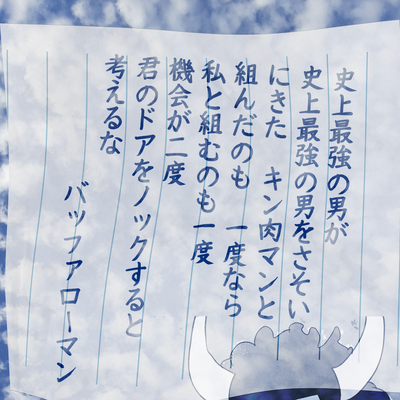 史上最強の男が
史上最強の男をさそい
にきた キン肉マンと
組んだのも 一度なら
私と組むのも一度
機会が二度
君のドアをノックすると
考えるな
バッファローマン